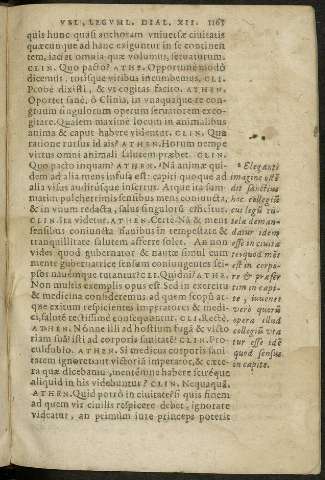 VEL, LEGVML. DIAL. XII. 1165
quis hunc quasi anchoram vniuersæ ciuitatis
quæcunque ad hanc exiguntur in se continen
tem, iaciat omnia quæ volumus, seruaturum.
CLIN. Quo pacto? ATHE. Opportunè modò
dicemus, totisque viribus incumbemus. CLI.
Probè dixisti, & vt cogitas facito. ATHEN.
Oportet sanè, ô Clinia, in vnaquaque re con-
gruum singulorum operum seruatorem exco-
gitare. Qualem maximè locum in animalibus
anima & caput habere videntur. CLIN. Qua
ratione rursus id ais? ATHEN. Horum nempe
virtus omni animali salutem præbet. CLIN.
Quo pacto inquam? ATHEN. Nã animæ qui-
dem ad alia mens infusa est: capiti quoque ad
alia visus auditusque insertus. Atque ita sum-
matim pulcherrimis sensibus mens coniuncta,
& in vnum redacta, salus singulorũ efficitur.
CLIN. Sic videtur. ATHEN. Certè. Nã & mens
sensibus coniuncta nauibus in tempestate &
tranquillitate salutem afferre solet. An non
vides quòd gubernator & nautæ simul cum
mente gubernatrice sensum coniungentes sei-
psos nauémque tutantur? CLI. Quidni? ATHE.
Non multis exemplis opus est. Sed in exercitu
& medicina consideremus, ad quem scopũ at-
que exitum respicientes imperatores & medi-
ci, salutẽ rectè consequantur. CLI. Rectè.
ATHEN. Nónne illi ad hostium fugã & victo
riam suã? isti ad corporis sanitatẽ? CLIN. Pro-
cul dubio. ATHEN. Si medicus corporis sani-
tatem ignoret: aut victoriã imperator, & cæte-
ra quæ dicebam, mentémne habere scire´que
aliquid in his videbuntur? CLIN. Nequaquã.
ATHEN. Quid porrò in ciuitate? si quis finem
ad quem vir ciuilis respicere debet, ignorare
videatur, an primùm iure princeps poterit
a Eleganti
imagine osté
dit sanctius
hoc collegiũ
cui legũ tu-
tela deman-
datur idem
esse in ciuita
te quod mẽs
est in corpo-
re & præser
tim in capi-
te, iuuenes
verò quorũ
opera illud
collegiũ vta
tur esse idẽ
quod sensus
in capite.